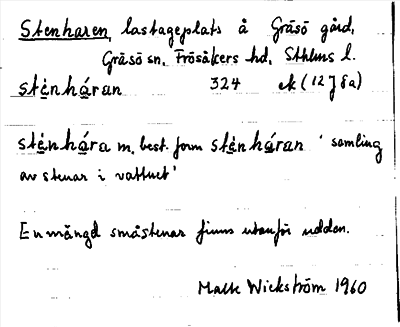 Stenharen, lastageplats å Gräsö gård,
Gräsö sn, Frösåkers hd, Sthlms l.
stènháran 324 ek (12 J 8a)
stènhára m, best. form stènháran 'samling
av stenar i vattnet'
En mängd småstenar finns utanför udden.
Malte Wickström 1960